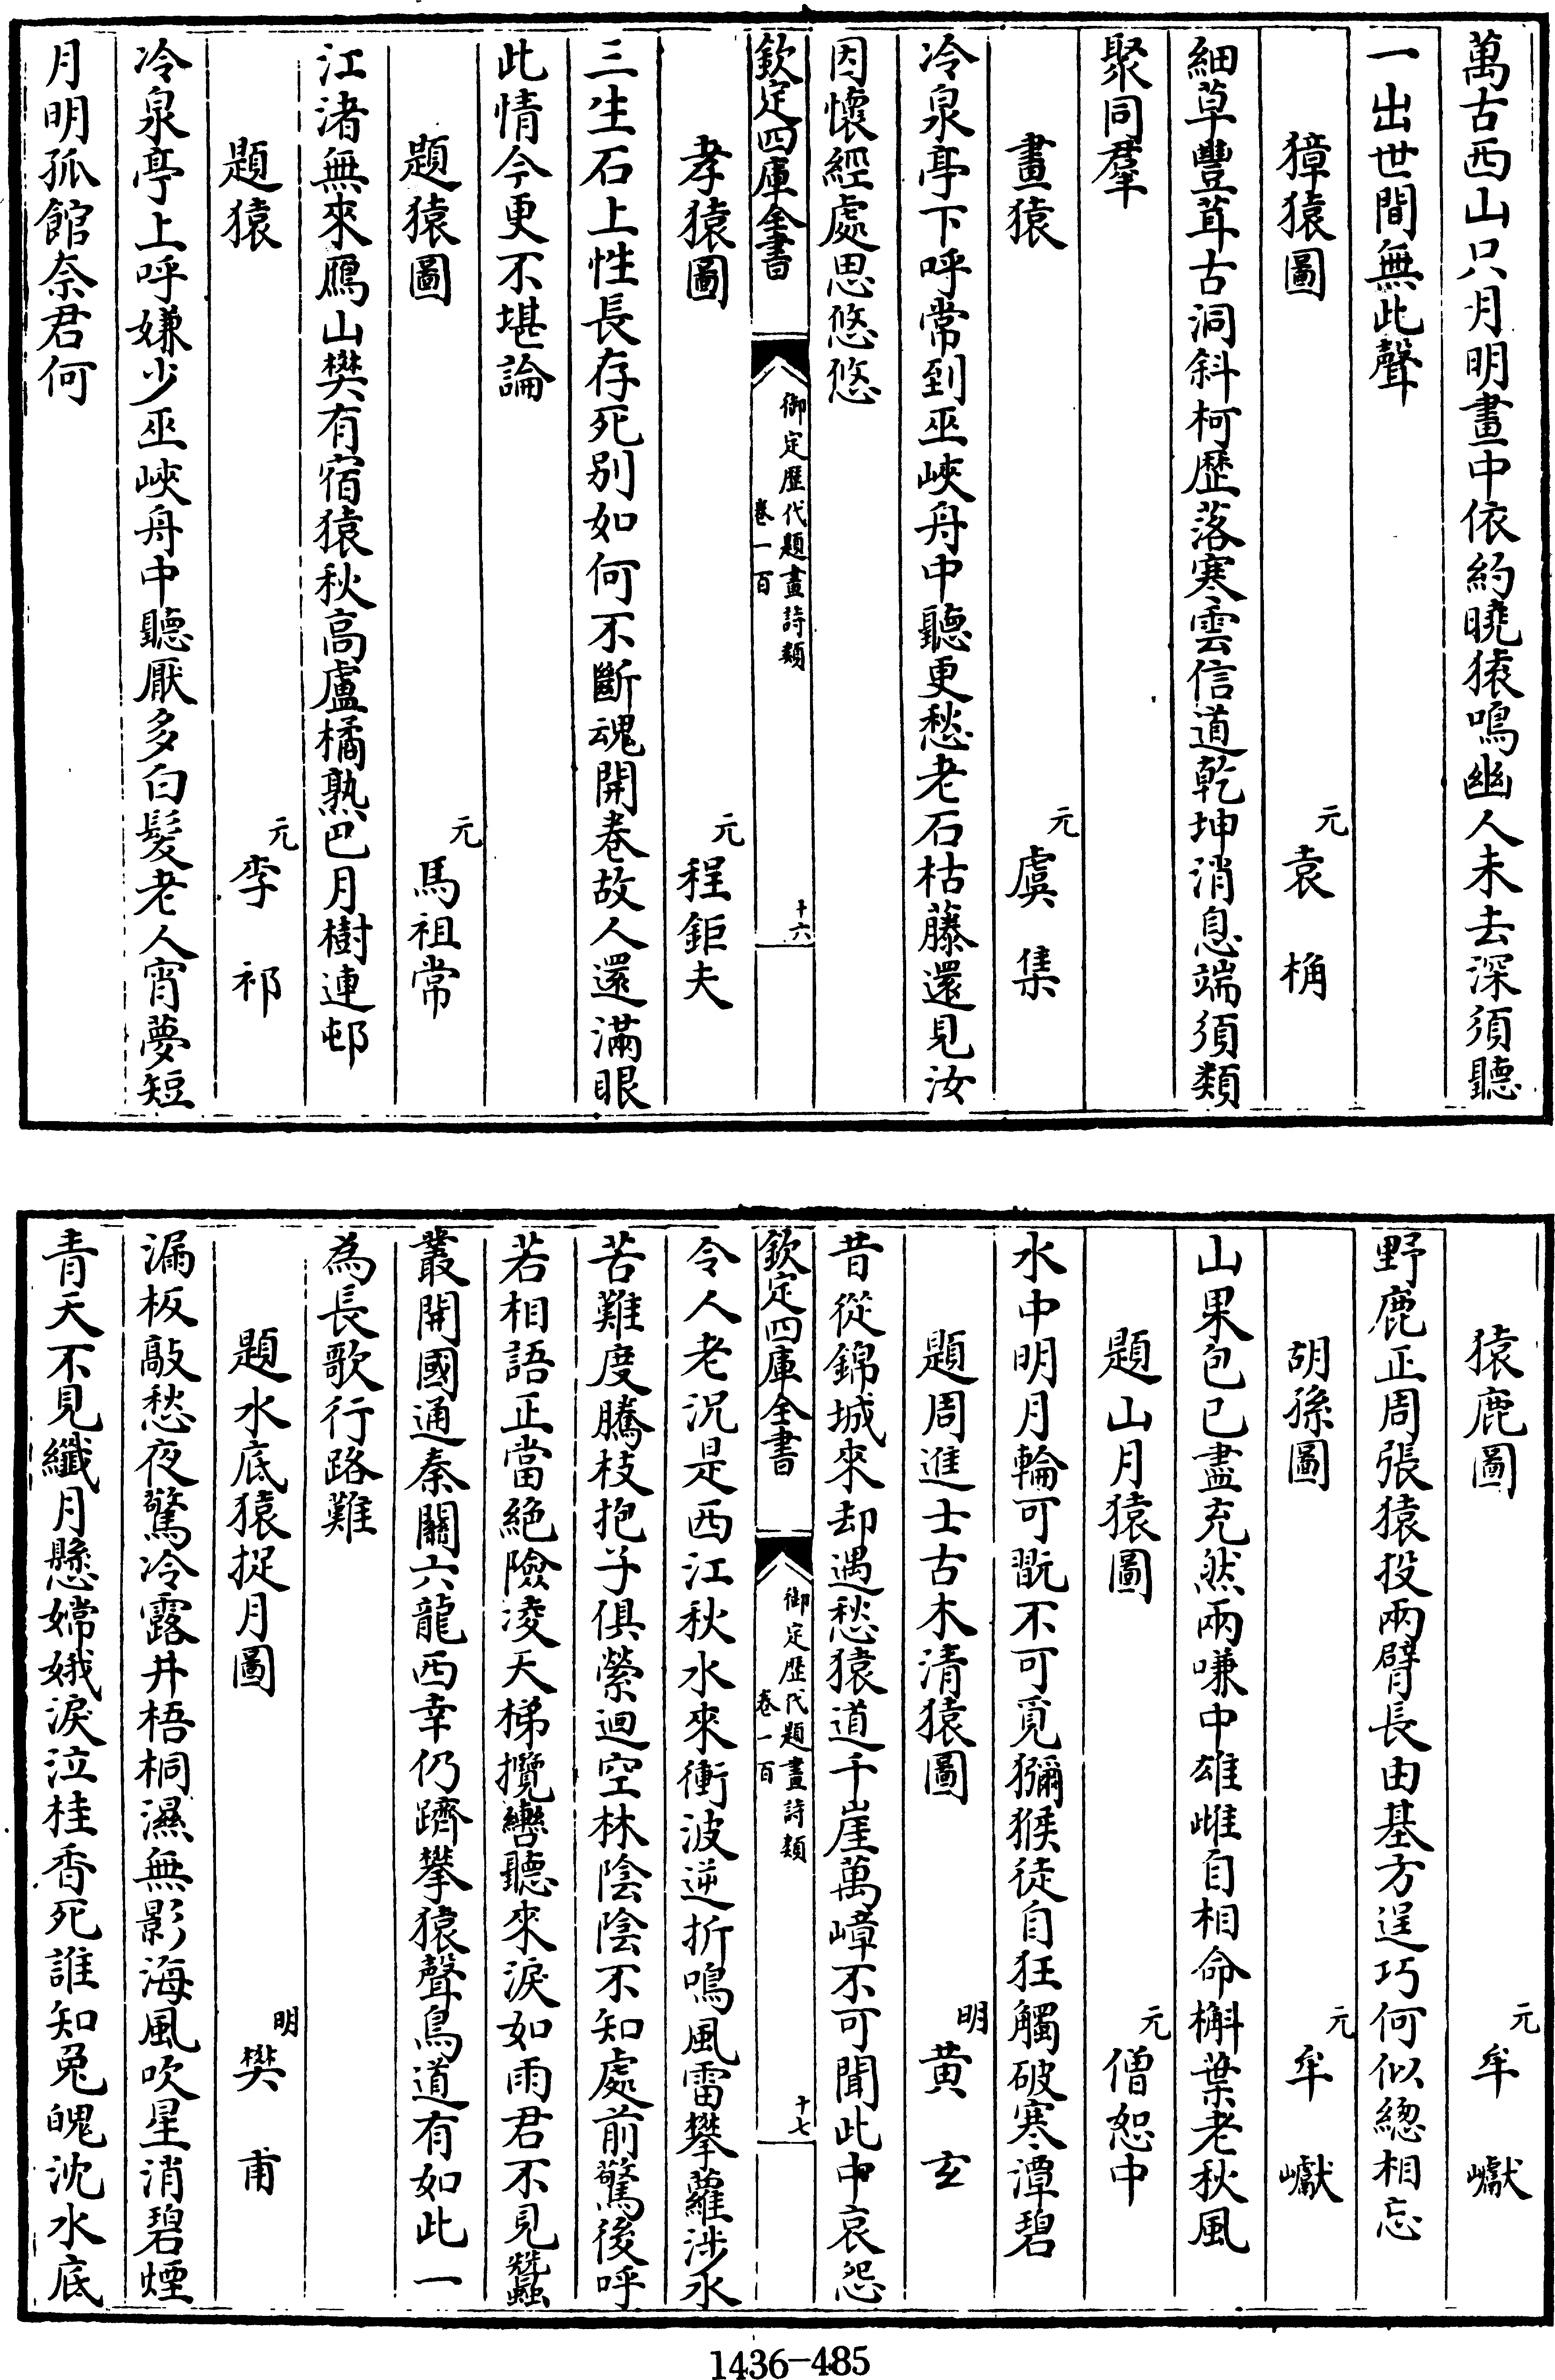 萬古西山只月明畫中依約曉猿鳴幽人未去深須聽
一出世間無此聲
獐猿圖
元袁桷
細草豐茸古洞斜柯歴落寒雲信道乾坤消息端須類
聚同羣
畫猿
元虞集
冷泉亭下呼常到巫峽舟中聽更愁老石枯藤還見汝
因懷經處思悠悠
欽定四庫全書
御定歷代題畫詩類
卷一百
十六
孝猿圖
元程鉅夫
三生石上性長存死别如何不斷魂開卷故人還滿眼
此情今更不堪論
題猿圖
元馬祖常
江渚無來鴈山樊有宿猿秋高盧橘熟巴月樹連邨
題猿
元李祁
冷泉亭上呼嫌少巫峽舟中聽厭多白髮老人宵夢短
月明孤館奈君何
猿鹿圖
元牟巘
野鹿正周張猿投兩臂長由基方逞巧何似緫相忘
胡孫圖
元牟巘
山果包已盡充然兩嗛中雄雌自相命槲葉老秋風
題山月猿圖
元僧恕中
水中明月輪可翫不可覓獼猴徒自狂觸破寒潭碧
題周進士古木清猿圖
明黄玄
昔從錦城來却遇愁猿道千崖萬嶂不可聞此中哀怨
欽定四庫全書
御定歷代題畫詩類
卷一百
十七
令人老況是西江秋水來衝波逆折鳴風雷攀蘿涉水
苦難度騰枝抱子俱縈迴空林陰陰不知處前驚後呼
若相語正當絶險凌天梯攬轡聽來淚如雨君不見蠶
叢開國通秦關六龍西幸仍躋攀猿聲鳥道有如此一
為長歌行路難
題水底猿捉月圖
明樊甫
漏板敲愁夜驚冷露井梧桐濕無影海風吹星消碧煙
青天不見纖月懸嫦娥淚泣桂香死誰知兔魄沈水底
1436-485